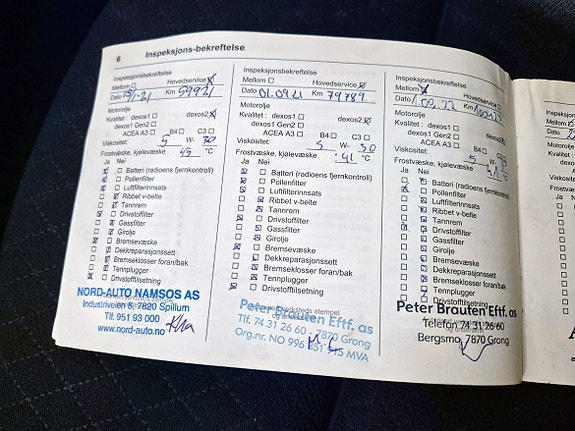 6
Inspeksjons-bekreftelse
Inspeksjonsbekreftelse
Mellom Hovedservice
Dato Km 59921
Motorolje
Kvalitet : dexos1 dexos2
dexos1 Gen2
ACEA A3 B4 C3
Viskositet: 5 W- 30
Frostvæske, kjølevæske 45 °C
Ja Nei
Batteri (radioens fjernkontroll)
Pollenfilter
Luftfilterinnsats
Ribbet v-belte
Tannrem
Drivstoffilter
Gassfilter
Girolje
Bremsevæske
Dekkreparasjonssett
Bremseklosser foran/bak
Tennplugger
Drivstofftilsetning
NORD-AUTO NAMSOS AS
Industriveien 8, 7820 Spillum
Tlf. 951 93 000
www.nord-auto.no
Inspeksjonsbekreftelse
Mellom Hovedservice
Dato 01.09.21 Km 79789
Motorolje
Kvalitet : dexos1 dexos2
dexos1 Gen2
ACEA A3 B4 C3
Viskositet: 5 W- 30
Frostvæske, kjølevæske -41 °C
Ja Nei
Batteri (radioens fjernkontroll)
Pollenfilter
Luftfilterinnsats
Ribbet v-belte
Tannrem
Drivstoffilter
Gassfilter
Girolje
Bremsevæske
Dekkreparasjonssett
Bremseklosser foran/bak
Tennplugger
Drivstofftilsetning
Peter Brauten Eftf. as
Tlf. 74 31 26 60 - 7870 Grong
Org.nr. NO 996 MVA
Inspeksjonsbekreftelse
Mellom Hovedservice
Dato Km
Motorolje
Kvalitet : dexos1 dexos2
dexos1 Gen2
ACEA A3 B4 C3
Viskositet: 5 W-
Frostvæske, kjølevæske °C
Ja Nei
Batteri (radioens fjernkontroll)
Pollenfilter
Luftfilterinnsats
Ribbet v-belte
Tannrem
Drivstoffilter
Gassfilter
Girolje
Bremsevæske
Dekkreparasjonssett
Bremseklosser foran/bak
Tennplugger
Drivstofftilsetning
Peter Brauten Eftf. as
Telefon 74 31 26 60
Bergsmo, 7870 Grong